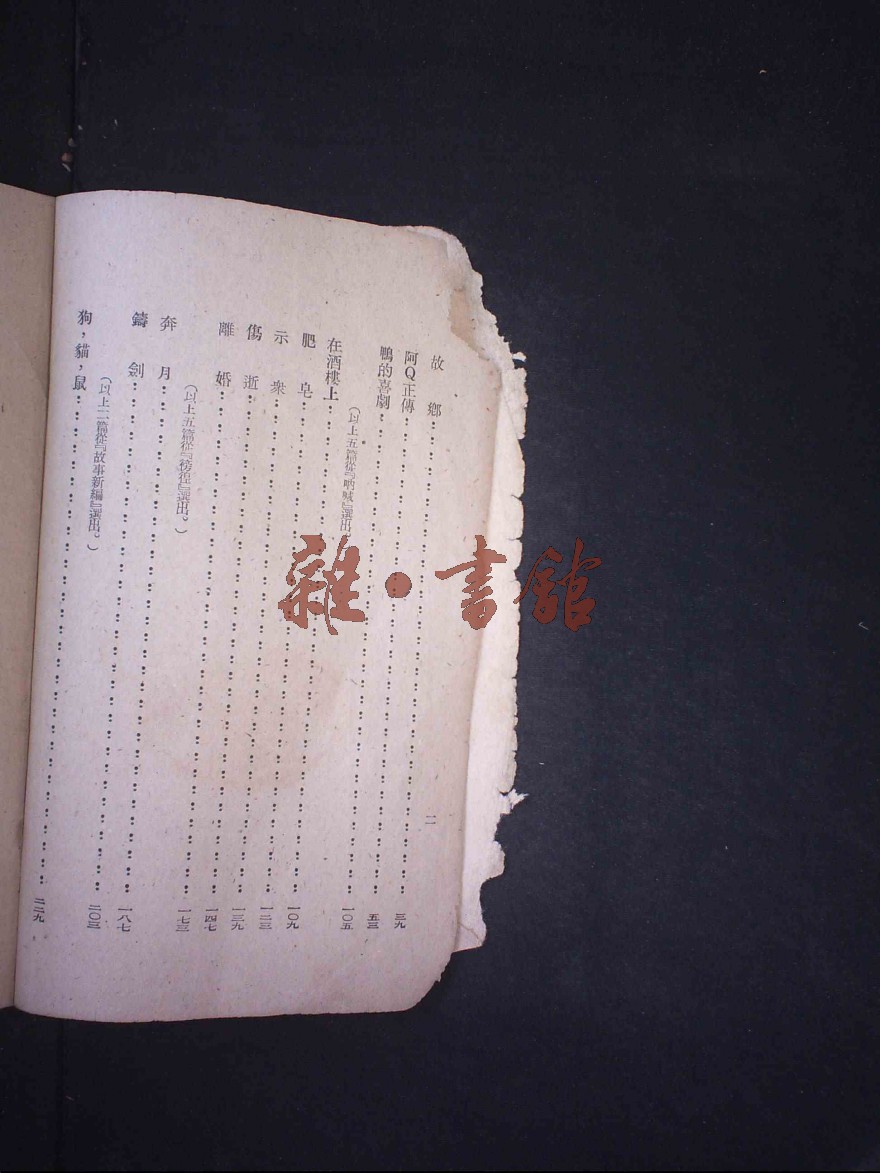 二
故鄉……三九
阿Q正傳……五三
鴨的喜劇……一〇五
(以上五篇從『吶喊』選出
在酒樓上……一〇九
肥皂……一二三
示衆……一三九
傷逝……一四七
離婚……一七三
(以上五篇從『徬徨』選出。)
奔月……一八七
鑄劍……二〇三
(以上二篇從『故事新編』選出。)
狗，貓，鼠……二二九
雜·書館